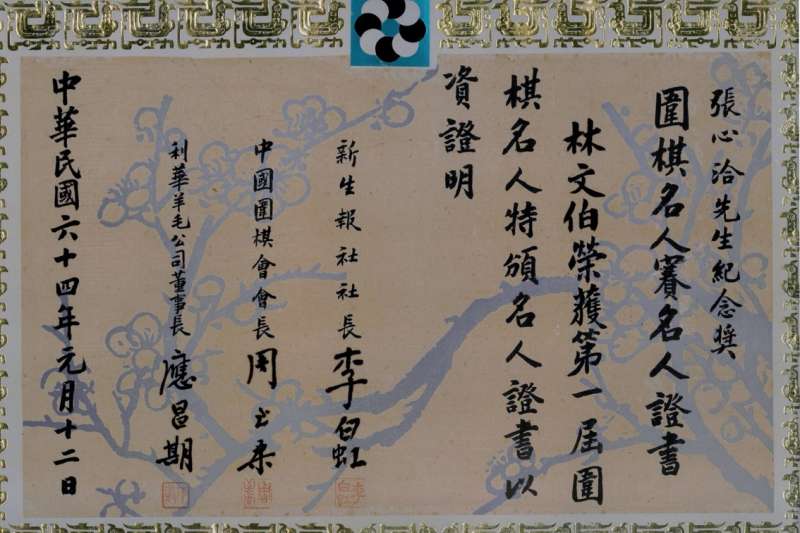 張心洽先生紀念獎
圍棋名人賽名人證書
林文伯榮獲第一屆圍
棋名人特頒名人證書以
資證明
新生報社社長 李白虹
中國圍棋會會長 周至柔
利華羊毛公司董事長 應昌期
中華民國六十四年元月十二日